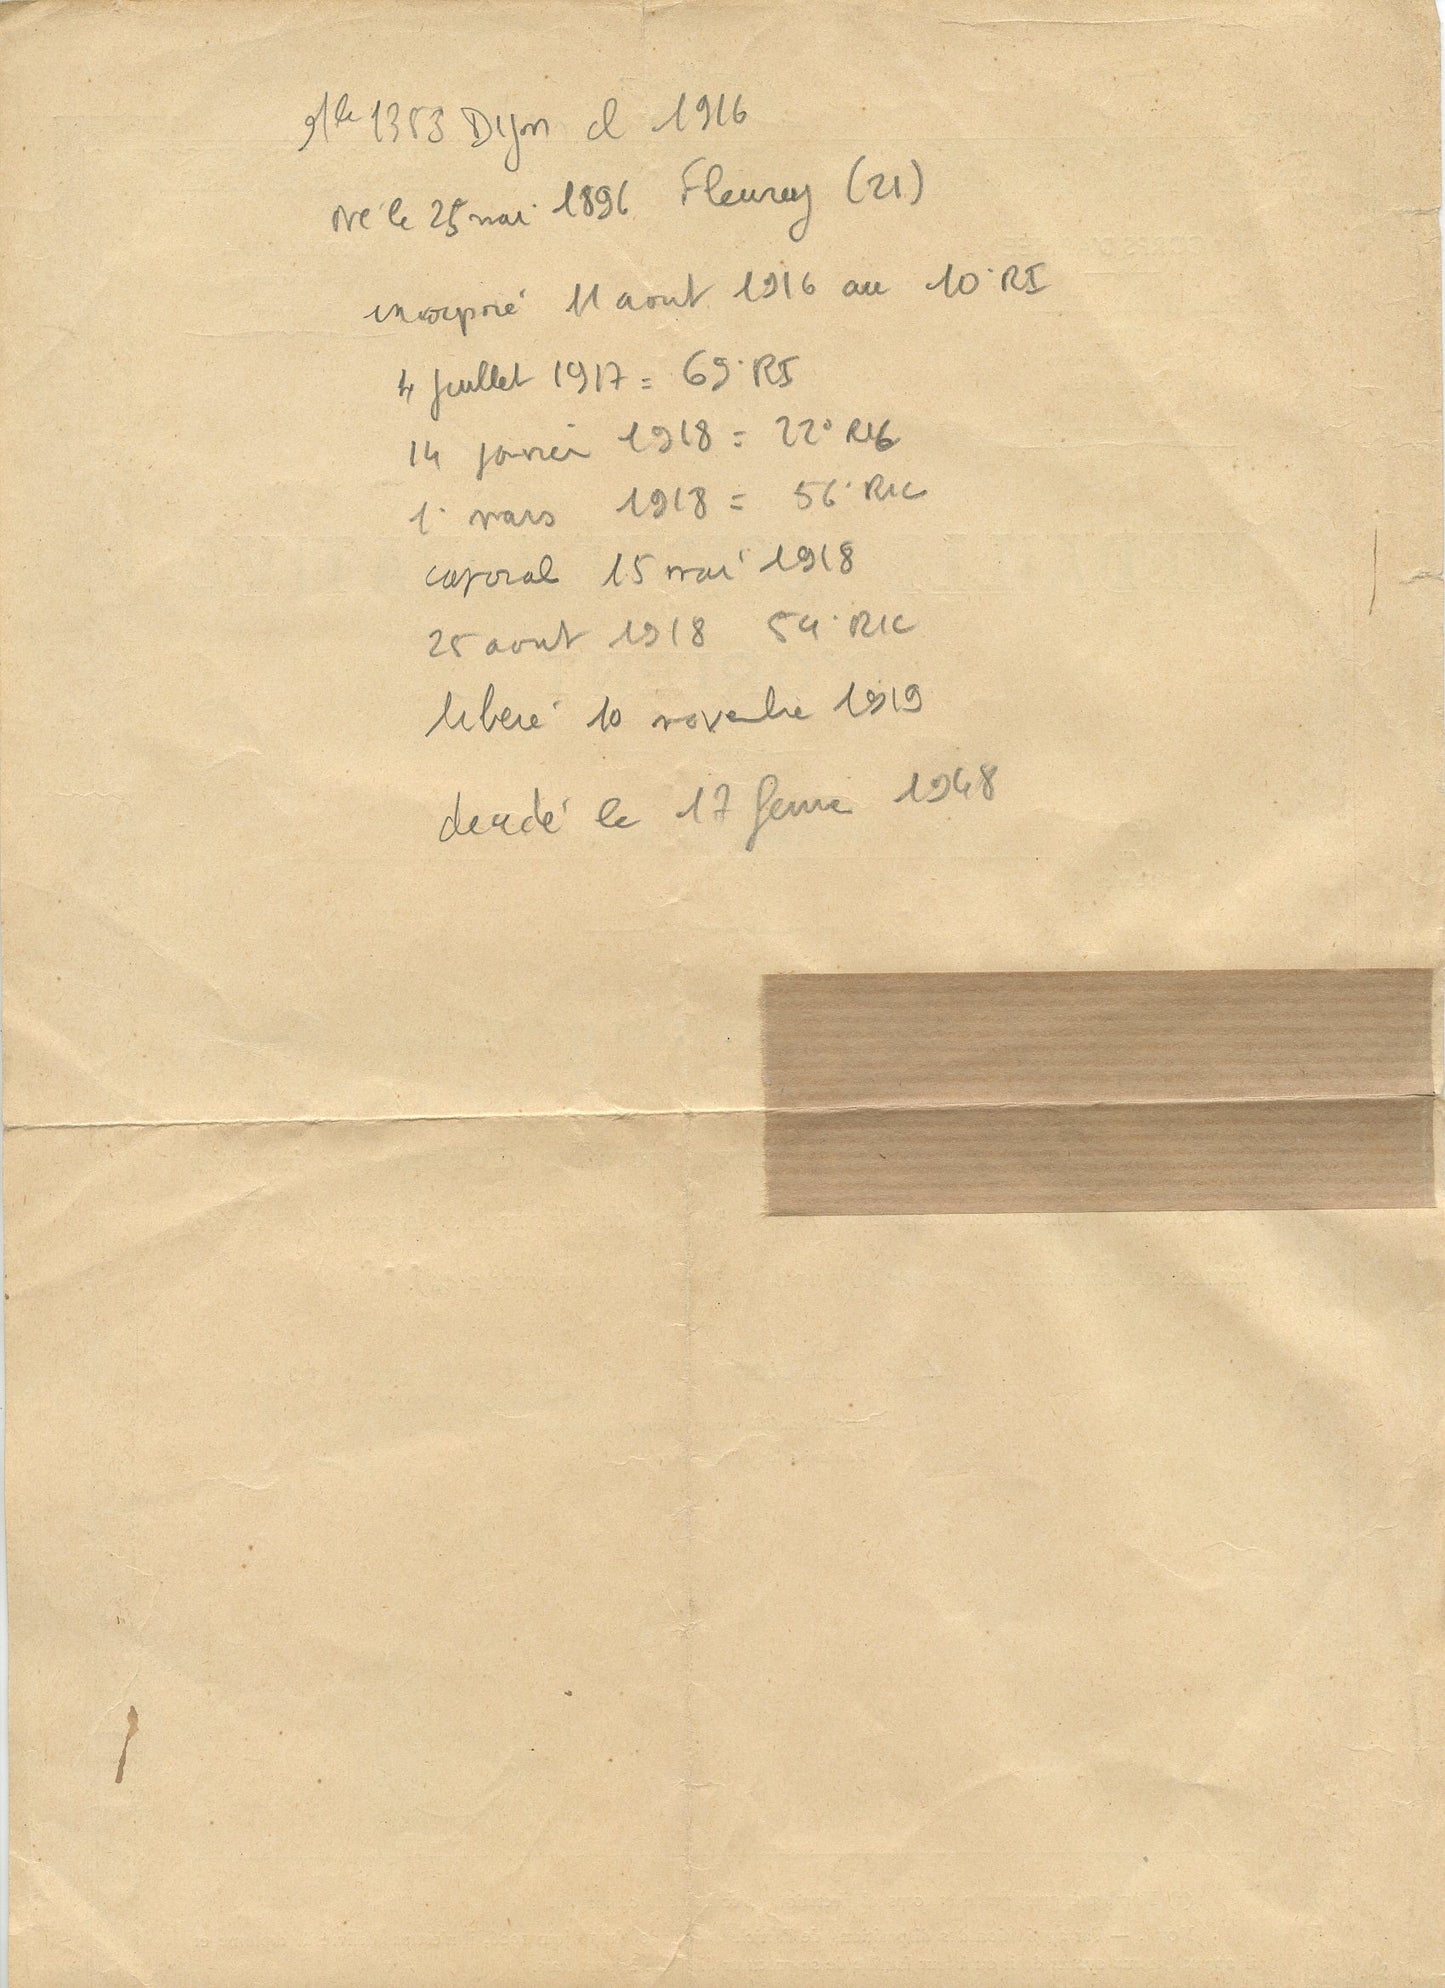 Mle 1353 Dijon cl 1916
Né le 25 mai 1896 Fleurey (21)
incorporé 11 aout 1916 au 10° RI
4 juillet 1917 = 69° RI
14 janvier 1918 = 22° RIC
1° mars 1918 = 56° RIC
caporal 15 mai 1918
25 aout 1918 54° RIC
libéré 10 novembre 1919
décédé le 17 février 1948